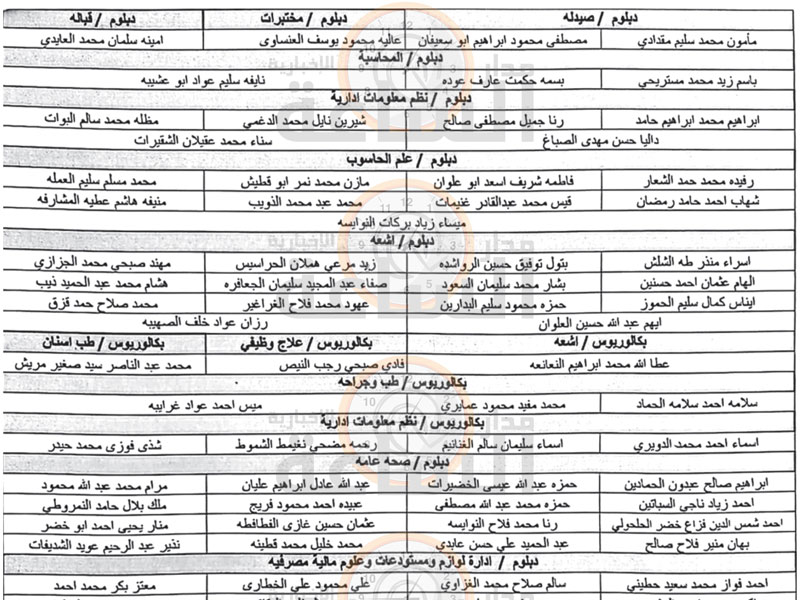 دبلوم / صيدله دبلوم / مختبرات دبلوم / قباله
مأمون محمد سليم مقدادي مصطفى محمود ابراهيم ابو سعيفان عاليه محمود يوسف العنساوى امينه سلمان محمد العايدي
دبلوم / المحاسبة
باسم زيد محمد مستريحي بسمه حكمت عارف عوده نايفه سليم عواد ابو عشيبه
دبلوم / نظم معلومات ادارية
ابراهيم محمد ابراهيم حامد رنا جميل مصطفى صالح شيرين نايل محمد الدغمي مظله محمد سالم البوات
داليا حسن مهدى الصباغ سناء محمد عقيلان الشقيرات
دبلوم / علم الحاسوب
رفيده محمد حمد الشعار فاطمه شريف اسعد ابو علوان مازن محمد نمر ابو قطيش محمد مسلم سليم العمله
شهاب احمد حامد رمضان قيس محمد عبدالقادر غنيمات محمد عبد محمد الذويب منيفه هاشم عطيه المشارفه
ميساء زياد بركات النوايسه
دبلوم / اشعه
اسراء منذر طه الشلش بتول توفيق حسين الرواشده زيد مرعي هملان الحراسيس مهند صبحي محمد الجزازي
الهام عثمان احمد حسنين بشار محمد سليمان السعود صفاء عبد المجيد سليمان الجعافره هشام محمد عبد الحميد ذيب
ايناس كمال سليم الحموز حمزه محمود سليم البدارين عهود محمد فلاح الغراغير محمد صلاح حمد قزق
ايهم عبد الله حسين العلوان رزان عواد خلف الصهيبه
بكالوريوس / اشعه بكالوريوس / علاج وظيفي بكالوريوس / طب اسنان
عطا الله محمد ابراهيم النعانعه فادي صبحي رجب النيص محمد عبد الناصر سيد صغير مريش
بكالوريوس / طب وجراحه
سلامه احمد سلامه الحماد محمد مفيد محمود عمايري ميس احمد عواد غرايبه
بكالوريوس / نظم معلومات ادارية
اسماء احمد محمد الدويري اسماء سليمان سالم الغنانيم رحمه مضحي نغيمط الشموط شذى فوزى محمد حيدر
دبلوم / صحه عامه
ابراهيم صالح عبدون الحمادين حمزه عبد الله عيسى الخضيرات عبد الله عادل ابراهيم عليان مرام محمد عبد الله محمود
احمد زياد ناجي السباتين حمزه محمد عبد الله مصطفى عبيده احمد محمود فريج ملك بلال حامد النمروطي
احمد شمس الدين قزاع خضر الحلحولي رنا محمد فلاح النوايسه عثمان حسين غازى القطافطه منار يحيى احمد ابو خضر
بهان منير فلاح صالح عبد الحميد علي حسن عابدي محمد خليل محمد قطينه نذير عبد الرحيم عويد الشديفات
دبلوم / ادارة لوازم ومستودعات وعلوم مالية مصرفيه
احمد فواز محمد سعيد حطيني سالم صلاح محمد الغزاوي علي محمود علي الخطارى معتز بكر محمد احمد